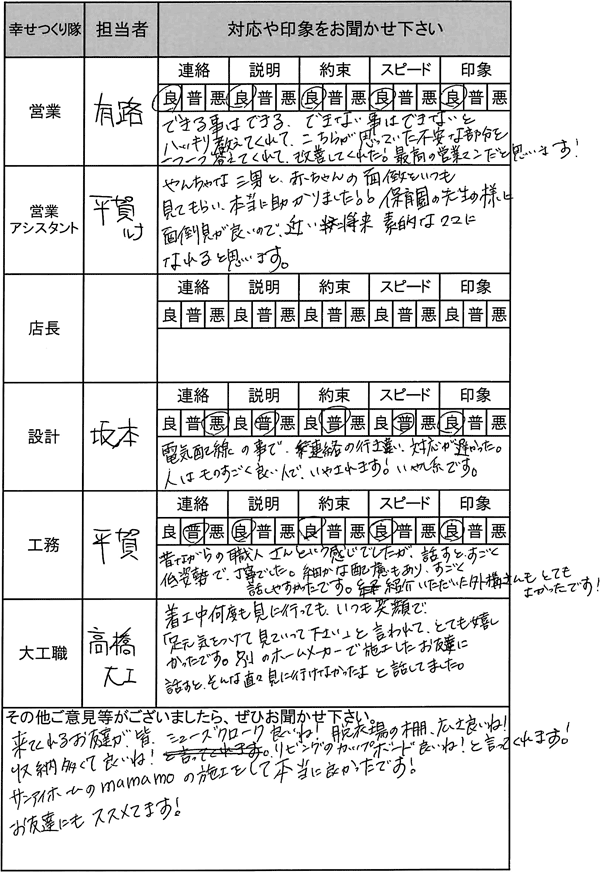 幸せつくり隊 担当者 対応や印象をお聞かせ下さい
営業 有路
連絡 説明 約束 スピード 印象
良 普 悪 良 普 悪 良 普 悪 良 普 悪 良 普 悪
できる事はできる、できない事はできないと
ハッキリ教えてくれて、こちらが思っていた不安な部分を
一つ一つ答えてくれて、改善してくれた!最高の営業マンだと思います!
営業アシスタント 平賀
やんちゃな三男と、赤ちゃんの面倒をいつも
見てもらい、本当に助かりました。保育園の先生の様に
面倒見が良いので、近い将来 素的なママに
なれると思います。
店長
連絡 説明 約束 スピード 印象
良 普 悪 良 普 悪 良 普 悪 良 普 悪 良 普 悪
設計 坂本
連絡 説明 約束 スピード 印象
良 普 悪 良 普 悪 良 普 悪 良 普 悪 良 普 悪
電気配線の事で、連絡の行き違い、対応が遅かった。
人はものすごく良い人で、いやされます!いやし系です。
工務 平賀
連絡 説明 約束 スピード 印象
良 普 悪 良 普 悪 良 普 悪 良 普 悪 良 普 悪
昔ながらの職人さんという感じでしたが、話すと、すごく
低姿勢で、丁寧でした。細かな配慮もあり、すごく
話しやすかったです。紹介いただいた外構さんもとても
よかったです!
大工職 高橋大工
着工中何度も見に行っても、いつも笑顔で
「足元気をつけて見ていって下さい」と言われて、とても嬉し
かったです。別のホームメーカーで施工したお友達に
話すと、そんな直々見に行けなかったよと話してました。
その他ご意見等がございましたら、ぜひお聞かせ下さい。
来てくれるお友達が、皆、シューズクローク良いね!脱衣場の棚、広さ良いね!
収納多くて良いね!と言ってくれます。リビングのカップボード良いね!と言ってくれます!
サンアイホームのmamamoの施工をして本当に良かったです!
お友達にもススメてます!